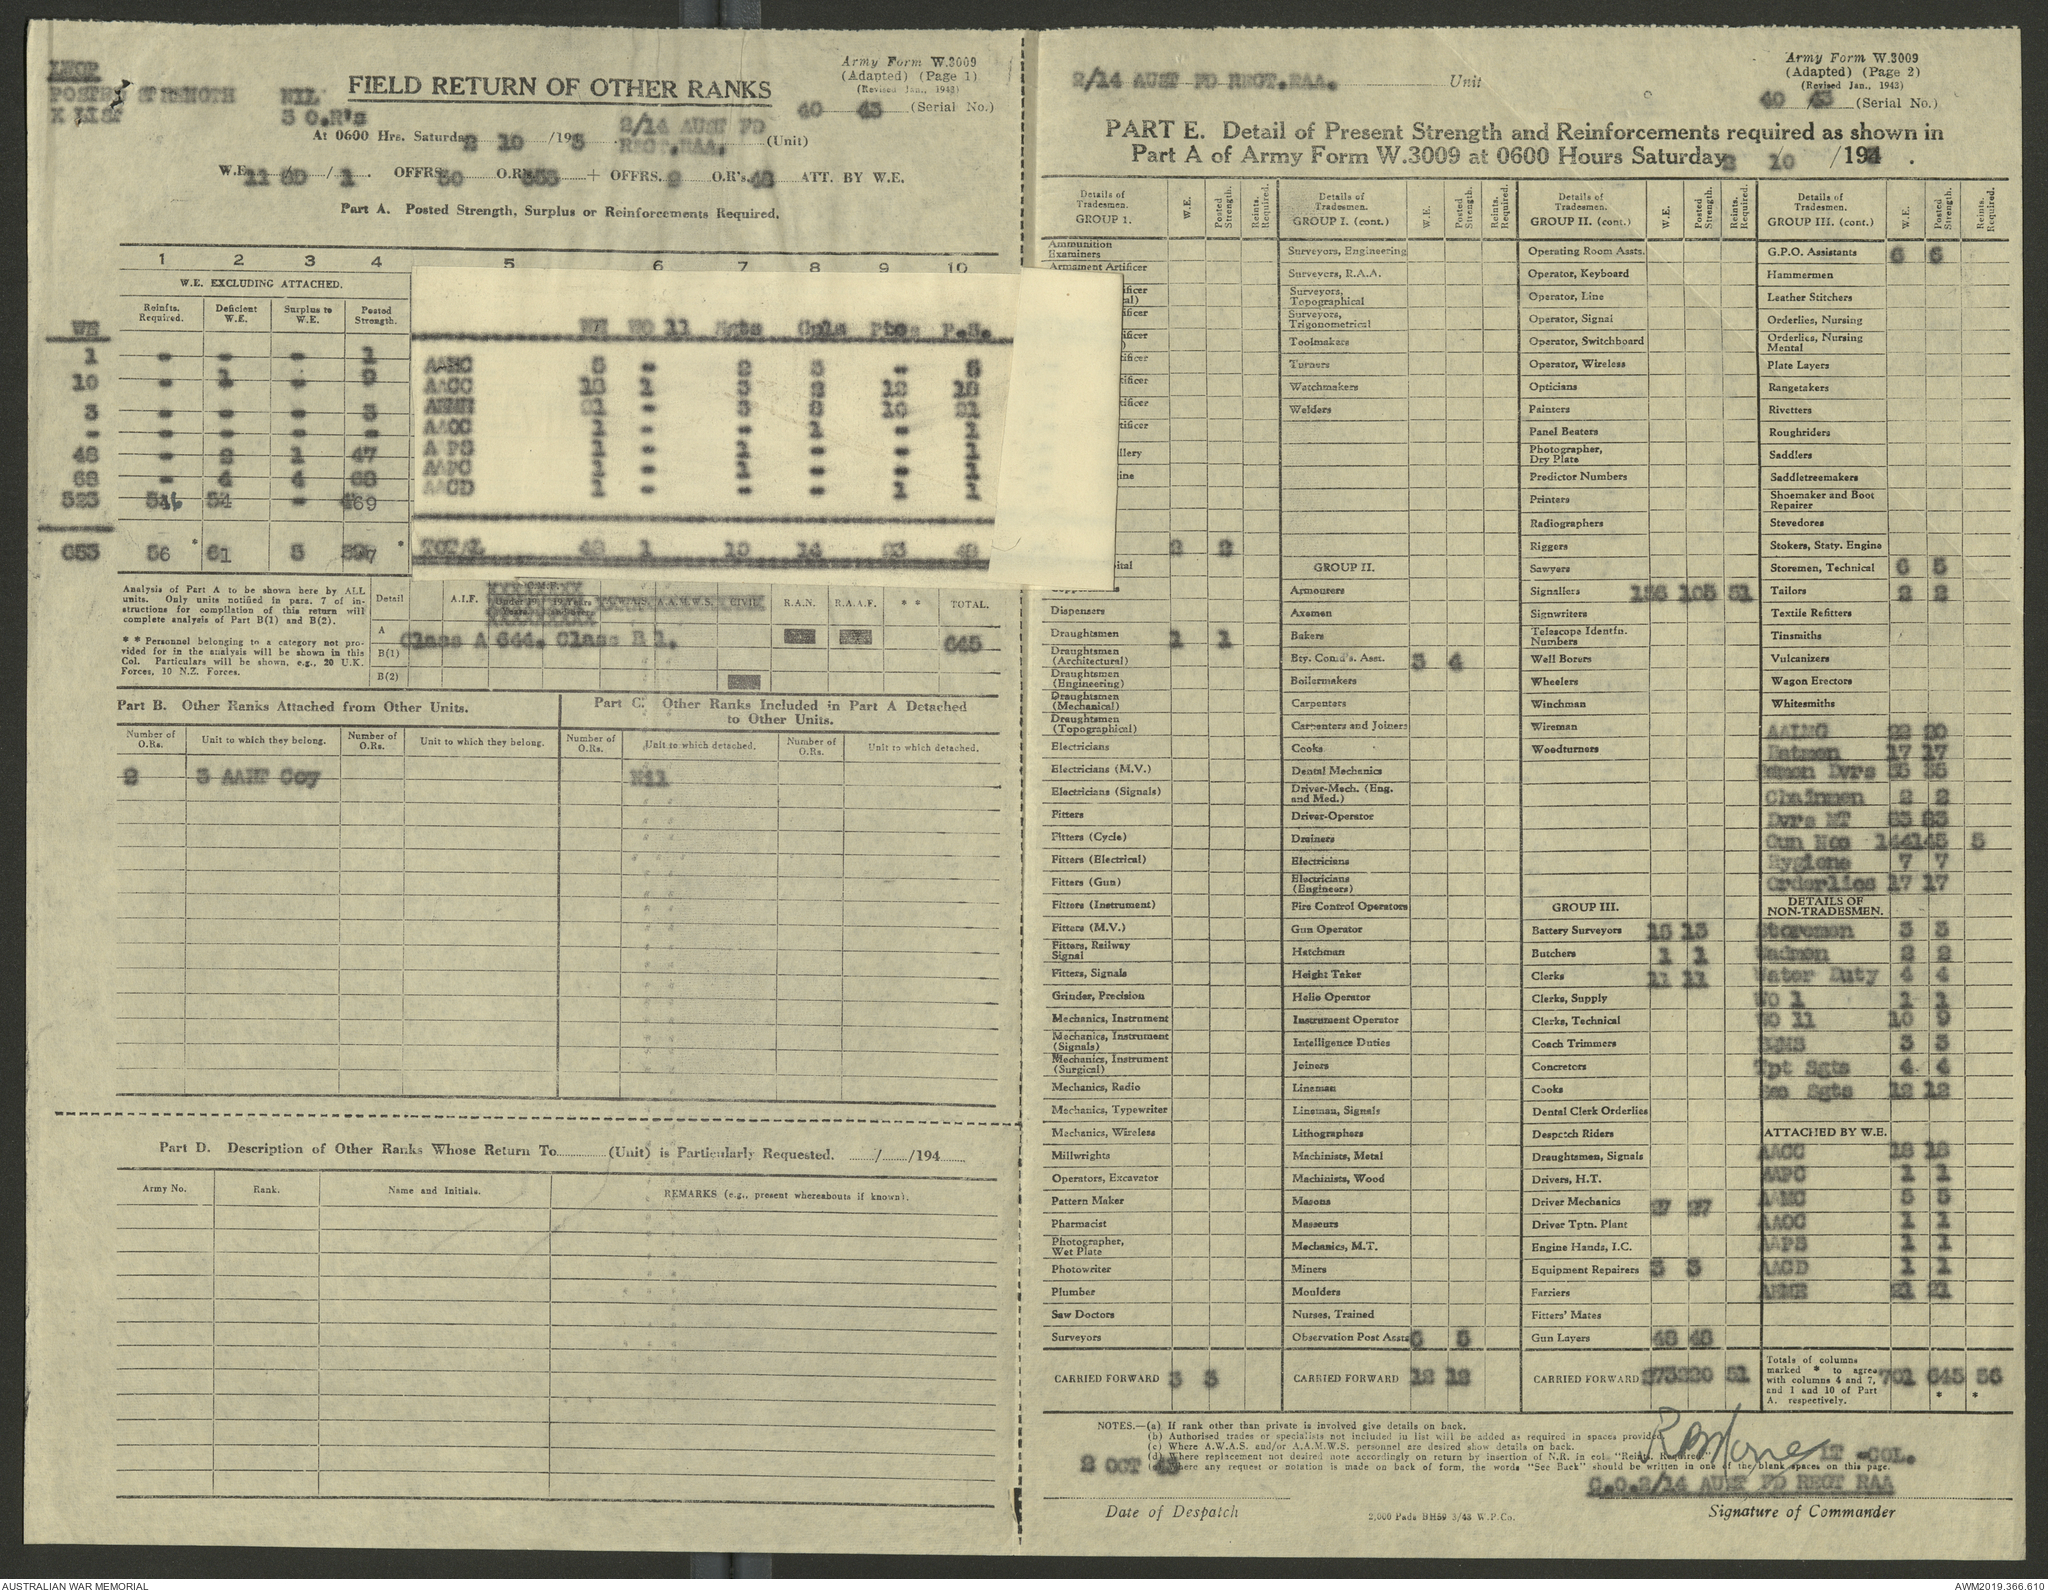 LHOP
POSTED STRENGTH NIL
X LIST 3 O.R's
FIELD RETURN OF OTHER RANKS
Army Form W.3009
(Adapted) (Page 1)
(Revised Jan., 1943)
40 43 (Serial No.)
At 0600 Hrs. Saturday 2 10 /1943 2/14 AUST FD REGT.RAA. (Unit)
W.E. 11 6D / 1 . OFFRS. O.R's. 653 + OFFRS. 2 O.R's. 48 ATT. BY W.E.
Part A. Posted Strength, Surplus or Reinforcements Required.
1 2 3 4 5 6 7 8 9 10
W.E. EXCLUDING ATTACHED.
WE Reinfts. Required. Deficient W.E. Surplus to W.E. Posted Strength.
1 - - - 1
10 - 1 - 9
3 - - - 3
- - - - -
48 - 2 1 47
68 - 4 4 68
523 54 - 469
653 56 * 61 5 *
WE WO 11 Sgts Cpls Ptes P.S.
AAMC 5 - 2 3 - 5
AACC 18 1 3 2 12 18
AEME 21 - 3 8 10 21
AAOC 1 - - 1 - 1
AAPS 1 - 1 - - 1
AAPC 1 - 1 - - 1
AACD 1 - - - 1 1
TOTAL 48 1 10 14 23 48
Analysis of Part A to be shown here by ALL
units. Only units notified in para. 7 of in-
structions for compilation of this return will
complete analysis of Part B(1) and B(2).
* * Personnel belonging to a category not pro-
vided for in the analysis will be shown in this
Col. Particulars will be shown, e.g., 20 U.K.
Forces, 10 N.Z. Forces.
Detail A.I.F. C.M.F. Under 19 Years 19 Years and over A.W.A.S. A.A.M.W.S. CIVIL R.A.N. R.A.A.F. * * TOTAL.
A
Class A 644. Class B 1. 645
B(1)
B(2)
Part B. Other Ranks Attached from Other Units.
Part C. Other Ranks Included in Part A Detached
to Other Units.
Number of O.Rs. Unit to which they belong. Number of O.Rs. Unit to which they belong. Number of O.Rs. Unit to which detached. Number of O.Rs. Unit to which detached.
2 3 AAHT Coy Nil
Part D. Description of Other Ranks Whose Return To (Unit) is Particularly Requested. / /194
Army No. Rank. Name and Initials. REMARKS (e.g., present whereabouts if known).
2/14 AUST FD REGT.RAA. Unit
Army Form W.3009
(Adapted) (Page 2)
(Revised Jan., 1943)
40 43 (Serial No.)
PART E. Detail of Present Strength and Reinforcements required as shown in
Part A of Army Form W.3009 at 0600 Hours Saturday 2 / 10 /194 .
Details of Tradesmen. GROUP 1. W.E. Posted Strength. Reints. Required.
Ammunition Examiners
Armament Artificer
2 2
Dispensers
Draughtsmen 1 1
Draughtsmen (Architectural)
Draughtsmen (Engineering)
Draughtsmen (Mechanical)
Draughtsmen (Topographical)
Electricians
Electricians (M.V.)
Electricians (Signals)
Fitters
Fitters (Cycle)
Fitters (Electrical)
Fitters (Gun)
Fitters (Instrument)
Fitters (M.V.)
Fitters, Railway Signal
Fitters, Signals
Grinder, Precision
Mechanics, Instrument
Mechanics, Instrument (Signals)
Mechanics, Instrument (Surgical)
Mechanics, Radio
Mechanics, Typewriter
Mechanics, Wireless
Millwrights
Operators, Excavator
Pattern Maker
Pharmacist
Photographer, Wet Plate
Photowriter
Plumber
Saw Doctors
Surveyors
CARRIED FORWARD 3 3
Details of Tradesmen. GROUP I. (cont.) W.E. Posted Strength. Reints. Required.
Surveyors, Engineering
Surveyors, R.A.A.
Surveyors, Topographical
Surveyors, Trigonometrical
Toolmakers
Turners
Watchmakers
Welders
GROUP II.
Armourers
Axemen
Bakers
Bty. Comd's. Asst. 3 4
Boilermakers
Carpenters
Carpenters and Joiners
Cooks
Dental Mechanics
Driver-Mech. (Eng. and Med.)
Driver-Operator
Drainers
Electricians
Electricians (Engineers)
Fire Control Operators
Gun Operator
Hatchman
Height Taker
Helio Operator
Instrument Operator
Intelligence Duties
Joiners
Lineman
Lineman, Signals
Lithographers
Machinists, Metal
Machinists, Wood
Masons
Masseurs
Mechanics, M.T.
Miners
Moulders
Nurses, Trained
Observation Post Assts. 6 5
CARRIED FORWARD 12 12
Details of Tradesmen. GROUP II. (cont.) W.E. Posted Strength. Reints. Required.
Operating Room Assts.
Operator, Keyboard
Operator, Line
Operator, Signal
Operator, Switchboard
Operator, Wireless
Opticians
Painters
Panel Beaters
Photographer, Dry Plate
Predictor Numbers
Printers
Radiographers
Riggers
Sawyers
Signallers 156 105 51
Signwriters
Telescope Identfn. Numbers
Well Borers
Wheelers
Winchman
Wireman
Woodturners
GROUP III.
Battery Surveyors 13
Butchers 1 1
Clerks 11 11
Clerks, Supply
Clerks, Technical
Coach Trimmers
Concretors
Cooks
Dental Clerk Orderlies
Despatch Riders
Draughtsmen, Signals
Drivers, H.T.
Driver Mechanics 27 27
Driver Tptn. Plant
Engine Hands, I.C.
Equipment Repairers 3 3
Farriers
Fitters' Mates
Gun Layers 48 48
CARRIED FORWARD 51
Details of Tradesmen. GROUP III. (cont.) W.E. Posted Strength. Reints. Required.
G.P.O. Assistants 6 6
Hammermen
Leather Stitchers
Orderlies, Nursing
Orderlies, Nursing Mental
Plate Layers
Rangetakers
Rivetters
Roughriders
Saddlers
Saddletreemakers
Shoemaker and Boot Repairer
Stevedores
Stokers, Staty. Engine
Storemen, Technical 6 5
Tailors 2 2
Textile Refitters
Tinsmiths
Vulcanizers
Wagon Erectors
Whitesmiths
AALMG 22 20
Batmen 17 17
Batmen Dvrs
Chainmen 2 2
Dvrs MT
Gun Nos 144 145 5
Hygiene 7 7
Orderlies 17 17
DETAILS OF NON-TRADESMEN.
Storemen 3 3
Wadmen 2 2
Water Duty 4 4
WO 1 1 1
WO 11 10 9
BQMS 3 3
Tpt Sgts 4 4
Sec Sgts 12 12
ATTACHED BY W.E.
AACC 18 18
AAPC 1 1
AAMC 5 5
AAOC 1 1
AAPS 1 1
AACD 1 1
AEME 21 21
Totals of columns
marked * to agree
with columns 4 and 7,
and 1 and 10 of Part
A. respectively. 701 645 * 56 *
NOTES.—(a) If rank other than private is involved give details on back.
(b) Authorised trades or specialists not included in list will be added as required in spaces provided.
(c) Where A.W.A.S. and/or A.A.M.W.S. personnel are desired show details on back.
(d) Where replacement not desired note accordingly on return by insertion of N.R. in col. "Reints. Required."
(e) Where any request or notation is made on back of form, the words "See Back" should be written in one of the blank spaces on this page.
2 OCT 43
LT-COL.
C.O.2/14 AUST FD REGT RAA
Date of Despatch
2,000 Pads BH59 3/43 W.P.Co.
Signature of Commander
AUSTRALIAN WAR MEMORIAL
AWM2019.366.610